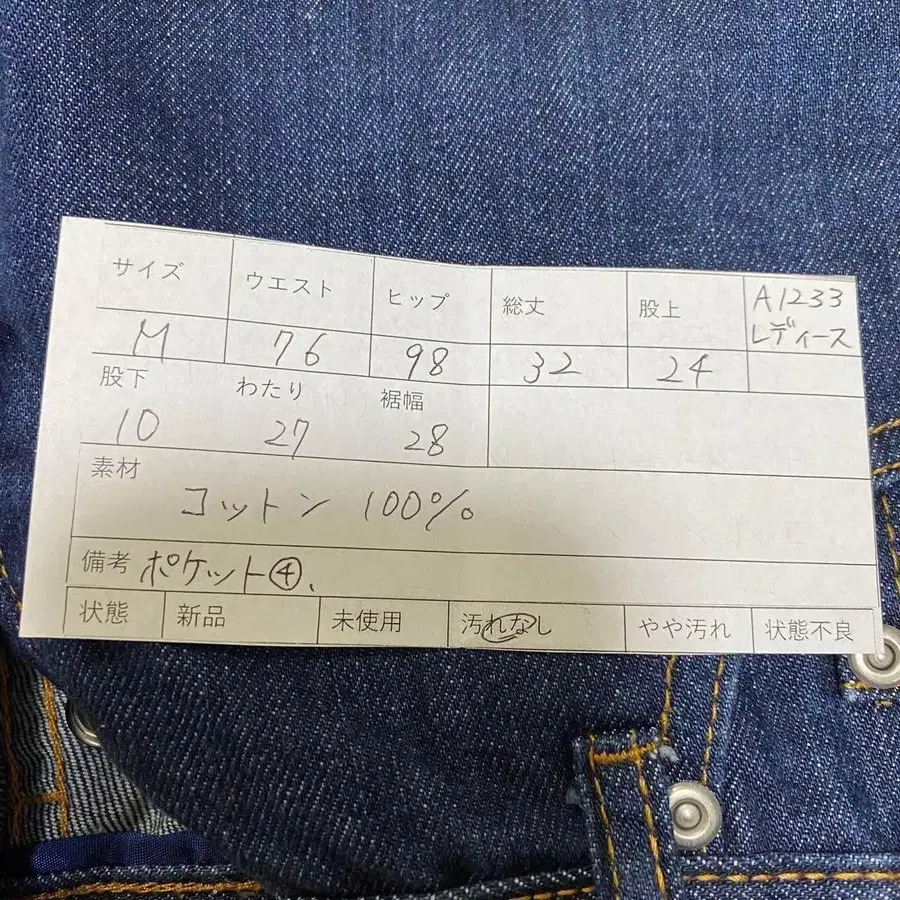 サイズ ウエスト ヒップ 総丈 股上 A1233
レディース
M 76 98 32 24
股下 わたり 裾幅
10 27 28
素材
コットン 100%
備考 ポケット④、
状態 新品 未使用 汚れなし やや汚れ 状態不良